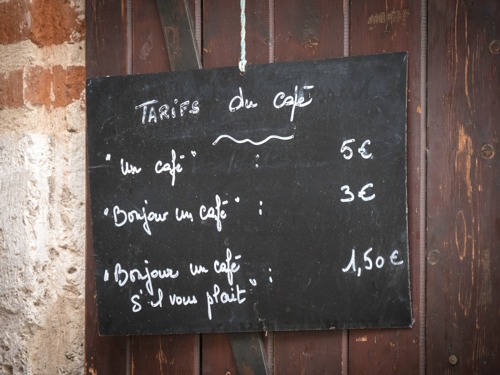 TARIFS du café
"un café" : 5€
"Bonjour un café" : 3€
"Bonjour un café
s'il vous plait" : 1,50€